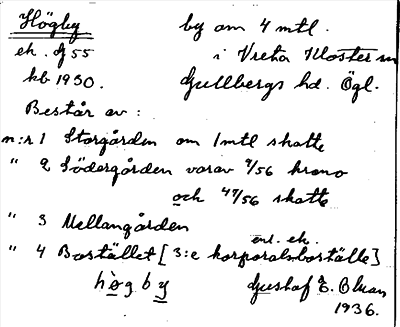 Högby by om 4 mtl.
ek. bl 55 i Vreta Kloster sn
kb 1930. Gullbergs hd. Ögl.
Består av:
n:r 1 Storgården om 1 mtl skatte
" 2 Södergården varav 9/56 krono
och 47/56 skatte
" 3 Mellangården
enl. ek.
" 4 Bostället [3:e korporalsboställe]
högby Gustaf E. Bluan
1936.